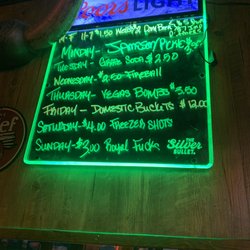 Coors LIGHT
M-F 11-7 $1.50 Wells &
Monday-
Tuesday- Grape Soda $2.50
Wednesday- $2.50 Fireball
Thursday- Vegas Bombs $3.50
Friday- Domestic Buckets $12.00
Saturday- $4.00 Freezer Shots
Sunday- $3.00 Royal Fuck
THE Silver BULLET.